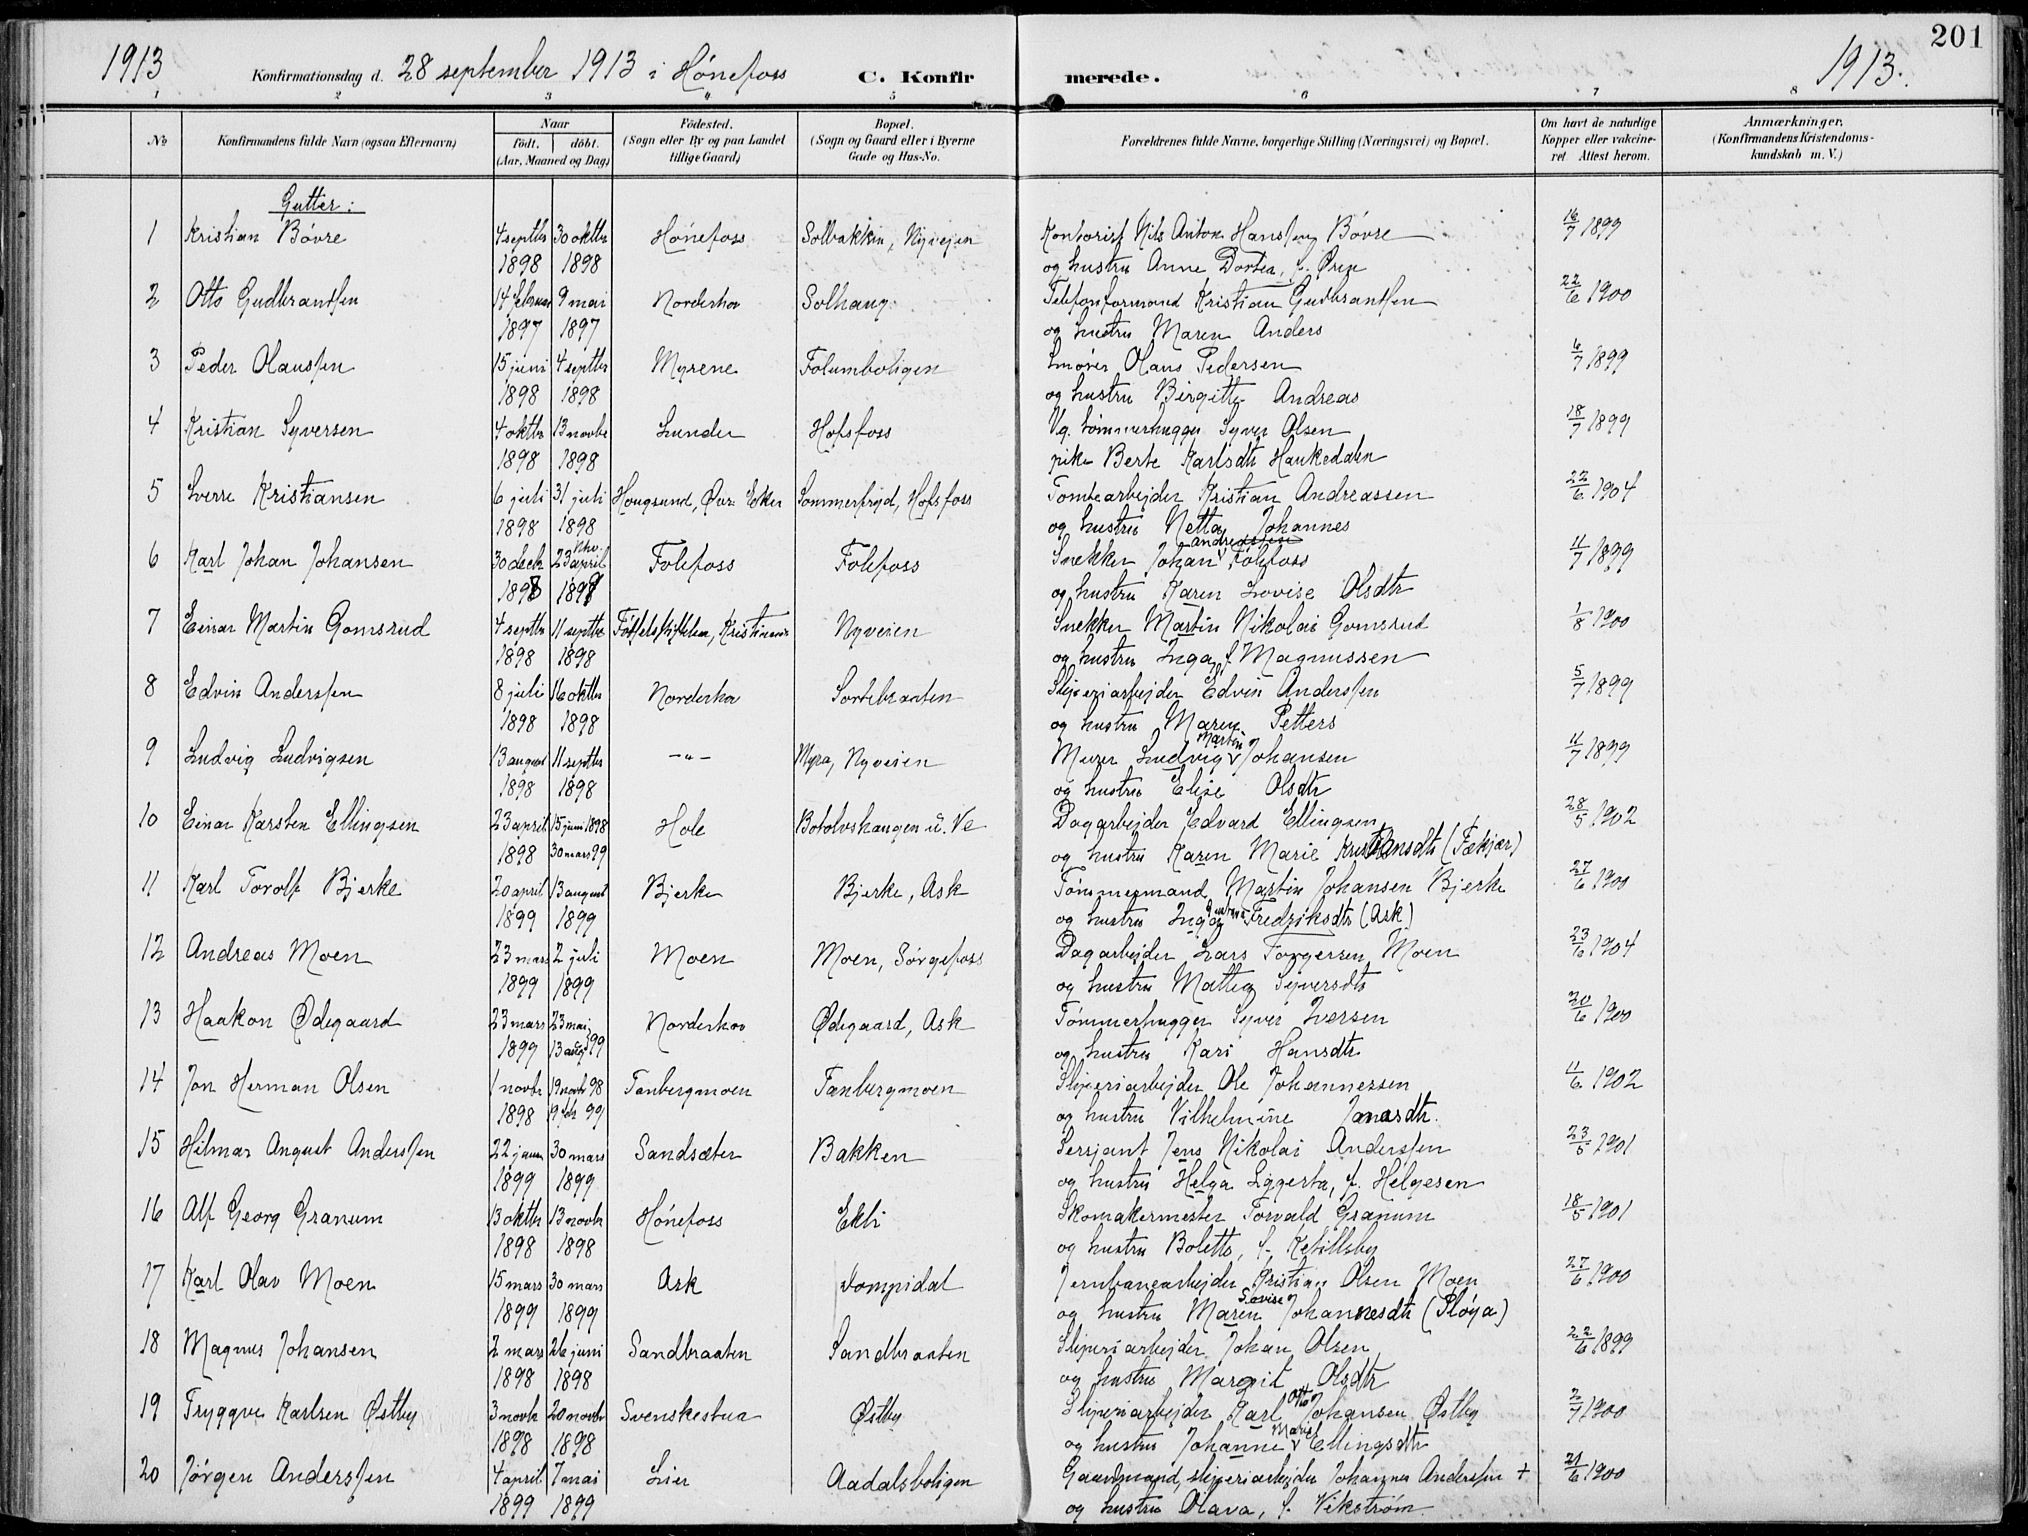 201
1913 Konfirmationsdag d. 28 september 1913 i Hónefoss C. Konfirmerede. 1913.
1 2 3 4 5 6 7 8
No
Konfirmandens fulde Navn (ogsaa Efternavn)
Naar
født. døbt.
(Aar, Maaned og Dag)
Fødested.
(Sogn eller By og paa Landet
tillige Gaard)
Bopæl.
(Sogn og Gaard eller i Byerne
Gade og Hus-No.
Forældrenes fulde Navne, borgerlige Stilling (Næringsvei) og Bopæl.
Om havt de naturlige
Kopper eller vakcine-
ret Attest herom.
Anmærkninger,
(Konfirmandens Kristendoms-
kundskab m. V.)
Gutter:
1 Kristian Bóvre 4 septbr 30 oktbr Hónefoss Solbakken, Nyveien Kontorist Nils Anton Hanssen Bóvre 16/7 1899
1898 1898 og hustru Anne Dortea, f. Øren
2 Otto Gudbrandssen 14 februar 9 mai Norderhov Solhaug Telefonformand Kristian Gudbrandssen 22/6 1900
1897 1897 og hustru Maren Anders
3 Peder Olaussen 15 juni 4 septbr Myrene Folumboligen Smórer Olaus Pedersen 6/7 1899
1898 1898 og hustru Birgitte Andreas
4 Kristian Syversen 4 oktbr 13 novbr Lunder Hofsfoss Ug. tómmerhugger Syver Olsen 18/7 1899
1898 1898 pike Berte Karlsdtr Haukedalen
5 Sverre Kristiansen 6 juli 31 juli Hougsund, Øvr. Eker Sommerfryd, Hofsfoss Tomtearbejder Kristian Andreassen 22/6 1904
1898 1898 og hustru Netta Johannes
6 Karl Johan Johansen 30 decbr 23 april Follefoss Follefoss Snekker Johan Follefoss 11/7 1899
1898 1899 og hustru Karen Lovise Olsdtr
7 Einar Martin Gomsrud 4 septbr 11 septbr Fódselsstiftelsen, Kristiania Nyveien Snekker Martin Nikolai Gomsrud 1/8 1900
1898 1898 og hustru Inga, f. Magnussen
8 Edvin Anderssen 8 juli 16 oktbr Norderhov Sortebraaten Sliperiarbejder Edvin Anderssen 5/7 1899
1898 1898 og hustru Maren Petters
9 Ludvig Ludvigsen 13 august 11 septbr -"- Myra, Nyveien Murer Ludvig Martin Johansen 11/7 1899
1898 1898 og hustru Elise Olsdtr
10 Einar Karsten Ellingsen 23 april 15 juni 1898 Hole Botolvshaugen u. Ve Dagarbejder Edvard Ellingsen 28/5 1902
1898 30 mars 99 og hustru Karen Marie Kristiansdtr (Fækjær)
11 Karl Torolf Bjerke 20 april 13 august Bjerke Bjerke, Ask Tómmermand Martin Johansen Bjerke 27/6 1900
1899 1899 og hustru Inga Fredriksdtr (Ask)
12 Andreas Moen 23 mars 2 juli Moen Moen, Sórgefoss Dagarbejder Lars Torgersen Moen 23/6 1904
1899 1899 og hustru Mattea Syversdtr
13 Haakon Ødegaard 23 mars 23 mai Norderhov Ødegaard, Ask Tómmerhugger Syver Iversen 20/6 1900
1899 13 aug 99 og hustru Kari Hansdtr
14 Jon Herman Olsen 1 novbr 19 novbr 98 Tanbergmoen Tanbergmoen Sliperiarbejder Ole Johannessen 11/6 1902
1898 19 feb 99 og hustru Vilhelmine Jonasdtr.
15 Hilmar August Anderssen 22 januar 30 mars Sandsæter Bakken Sersjant Jens Nikolai Anderssen 23/5 1901
1899 1899 og hustru Helga Eggerta, f. Helgesen
16 Alf Georg Granum 13 oktbr 13 novbr Hónefoss Ekli Skomakermester Torvald Granum 18/5 1901
1898 1898 og hustru Bolette, f. Ketillsby
17 Karl Olav Moen 15 mars 30 mars Ask Dompidal Jernbanearbejder Kristian Olsen Moen 27/6 1900
1899 1899 og hustru Maren Lovise Johannesdtr (Plóya)
18 Magnus Johansen 2 mars 26 juni Sandbraaten Sandbraaten Sliperiarbejder Johan Olsen 22/6 1899
1898 1898 og hustru Margit Olsdtr
19 Tryggve Karlsen Østby 3 novbr 20 novbr Svenskestua Østby Sliperiarbejder Karl Otto Johansen Østby 2/7 1900
1898 1898 og hustru Johanne Marie Ellingsdtr
20 Jórgen Anderssen 4 april 7 mai Lier Aadalsboligen Gaardmand, sliperiarbejder Johannes Anderssen + 21/6 1900
1899 1899 og hustru Olava, f. Vikstróm